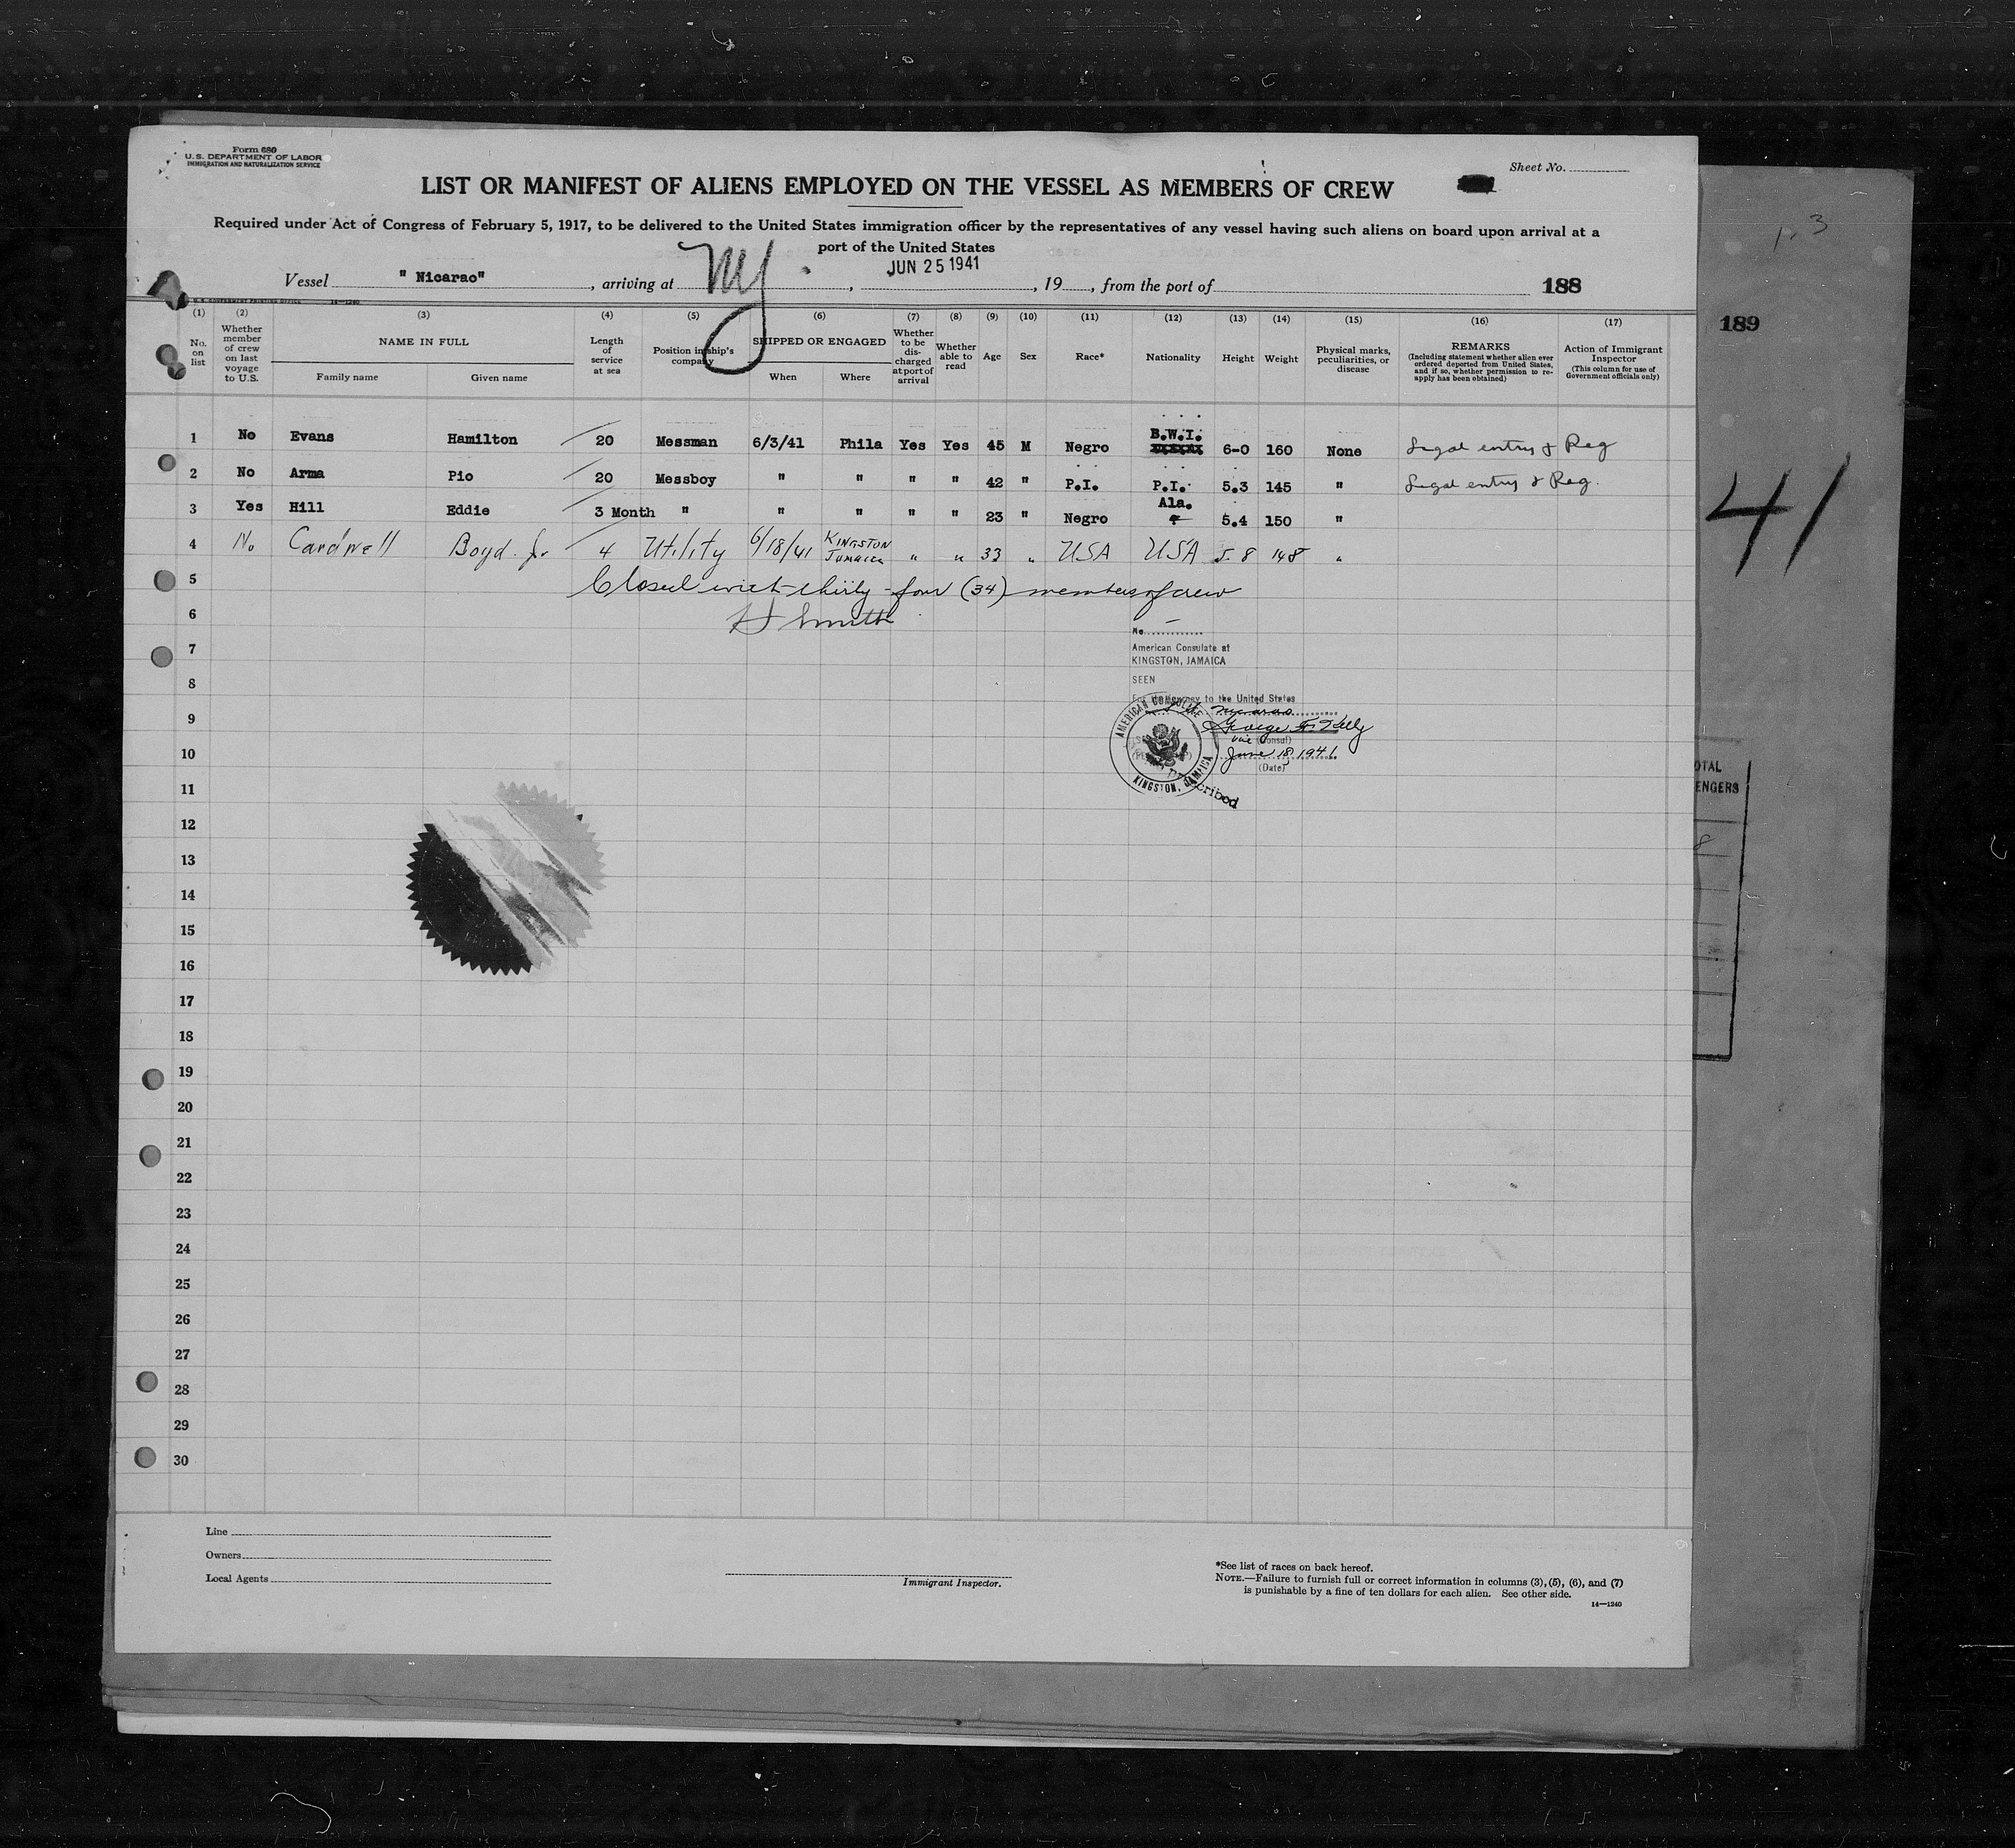 Form 680
U.S. DEPARTMENT OF LABOR
IMMIGRATION AND NATURALIZATION SERVICE
Sheet No.
LIST OR MANIFEST OF ALIENS EMPLOYED ON THE VESSEL AS MEMBERS OF CREW
Required under Act of Congress of February 5, 1917, to be delivered to the United States immigration officer by the representatives of any vessel having such aliens on board upon arrival at a
port of the United States
Vessel " Nicarao" , arriving at NY. , JUN 25 1941 , 19 , from the port of 188
14—1240
(1) (2) (3) (4) (5) (6) (7) (8) (9) (10) (11) (12) (13) (14) (15) (16) (17)
No. on list
Whether member of crew on last voyage to U.S.
NAME IN FULL
Family name Given name
Length of service at sea
Position in ship's company
SHIPPED OR ENGAGED
When Where
Whether to be discharged at port of arrival
Whether able to read
Age
Sex
Race*
Nationality
Height
Weight
Physical marks, peculiarities, or disease
REMARKS
(Including statement whether alien ever ordered deported from United States, and if so, whether permission to reapply has been obtained)
Action of Immigrant Inspector
(This column for use of Government officials only)
1 No Evans Hamilton 20 Messman 6/3/41 Phila Yes Yes 45 M Negro B.W.I. 6-0 160 None Legal entry & Reg
2 No Arma Pio 20 Messboy " " " " 42 " P.I. P.I. 5.3 145 " Legal entry & Reg.
3 Yes Hill Eddie 3 Month " " " " " 23 " Negro Ala. 5.4 150 "
4 No Cardwell Boyd Jr 4 Utility 6/18/41 KINGSTON JAMAICA " " 33 " USA USA 5.8 148 "
5 Closed with thirty-four (34) members of crew
6 H Smith
7
8
9
10
11
12
13
14
15
16
17
18
19
20
21
22
23
24
25
26
27
28
29
30
No.
American Consulate at
KINGSTON, JAMAICA
SEEN
For the journey to the United States
Nicarao
George F. Kelly
Vice (Consul)
June 18, 1941.
(Date)
AMERICAN CONSULATE
KINGSTON, JAMAICA
cribed
Line
Owners
Local Agents
Immigrant Inspector.
*See list of races on back hereof.
NOTE.—Failure to furnish full or correct information in columns (3), (5), (6), and (7)
is punishable by a fine of ten dollars for each alien. See other side.
14—1240
189
41
OTAL
ENGERS
8